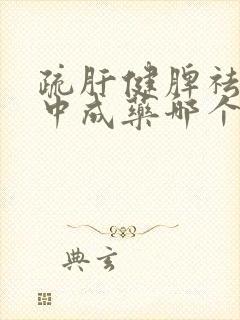 疏肝健脾祛
中成药那个
典玄